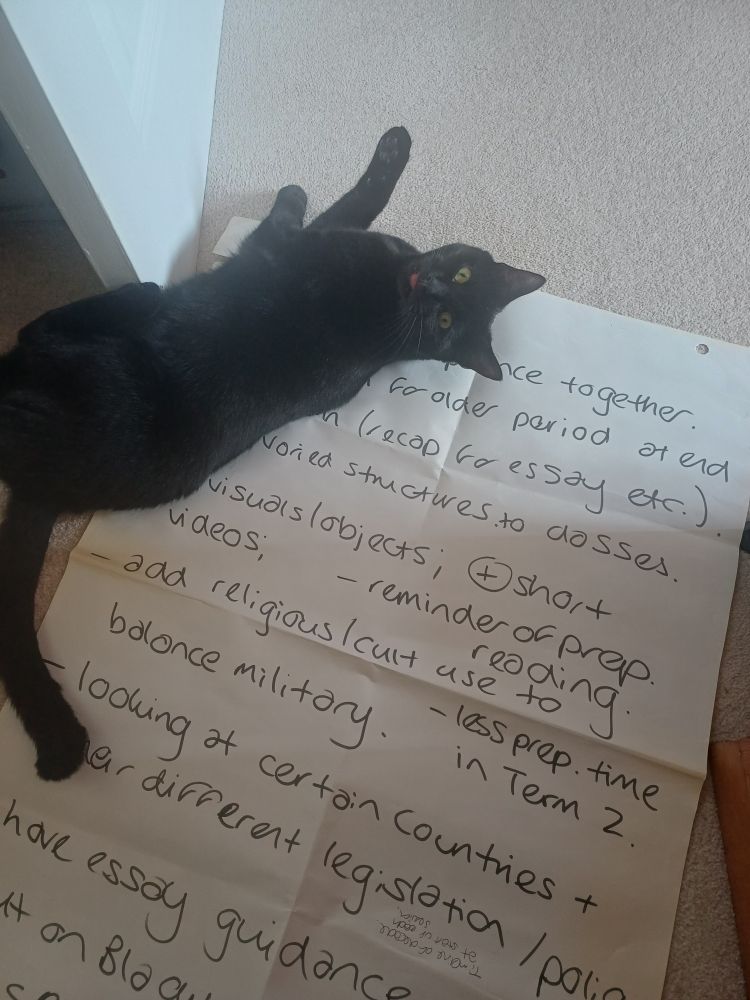 nce together.
for older period at end
n (recap for essay etc.).
varied structures to classes.
visuals/objects; + short
videos; - reminder of prep.
reading.
- add religious/cult use to
balance military. - less prep. time
in Term 2.
- looking at certain countries +
different legislation/polic
have essay guidance
on Blaqu
at start of each